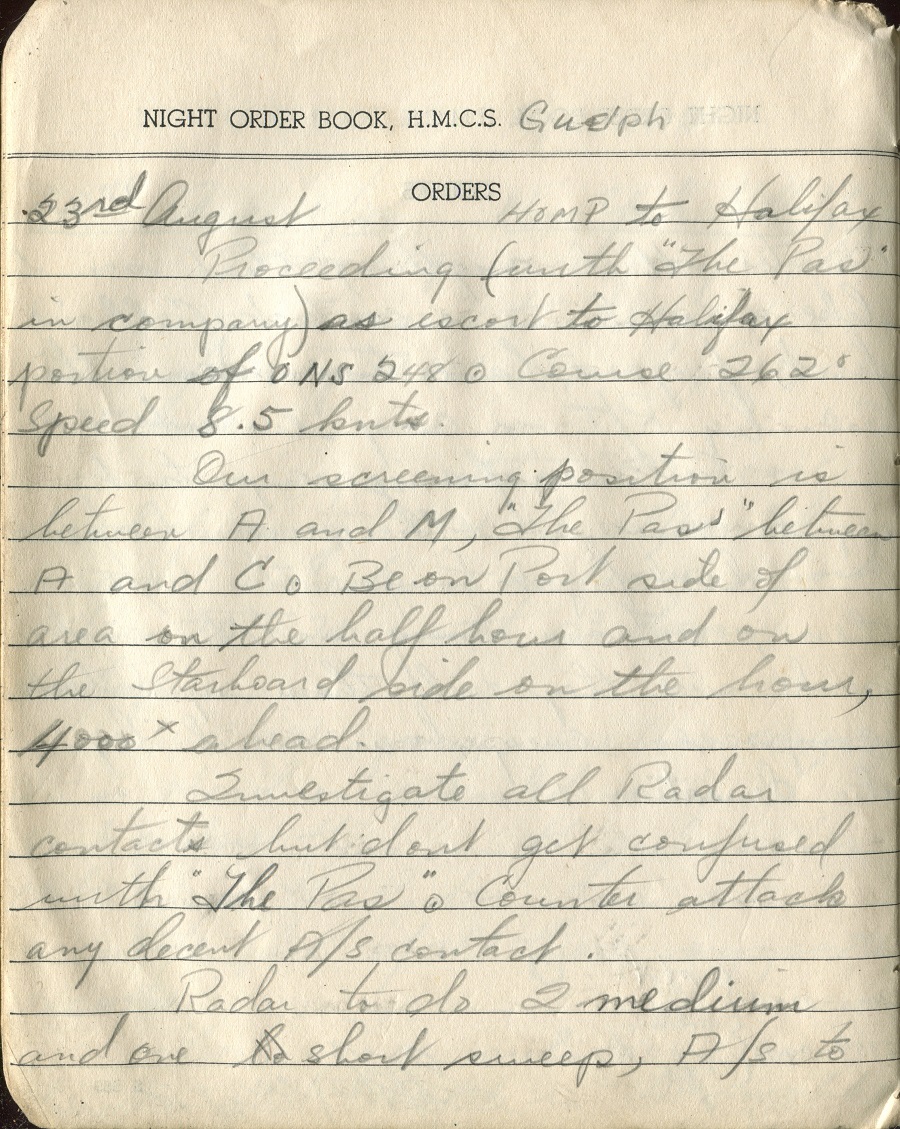 NIGHT ORDER BOOK, H.M.C.S. Guelph
ORDERS
23rd August HOMP to Halifax
Proceeding (with "The Pas"
in company) as escort to Halifax
portion of ONS 248. Course 262°
Speed 8.5 knts.
Our screening position is
between A and M, "The Pas" between
A and C. Be on Port side of
area on the half hour and on
the Starboard side on the hour,
4000x ahead.
Investigate all Radar
contacts but dont get confused
with "The Pas". Counter attack
any decent A/S contact.
Radar to do 2 medium
and one short sweep, A/S to